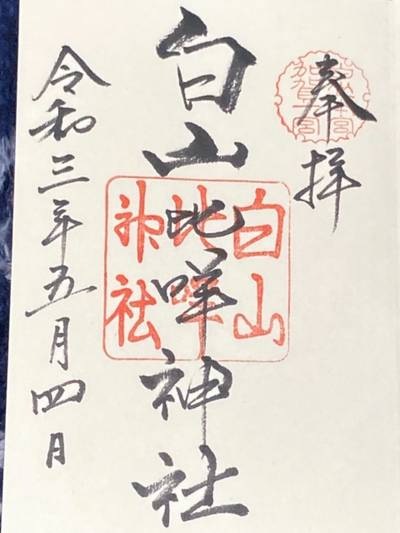 奉拝
白山比咩神社
白山
比咩
神社
令和三年五月四日